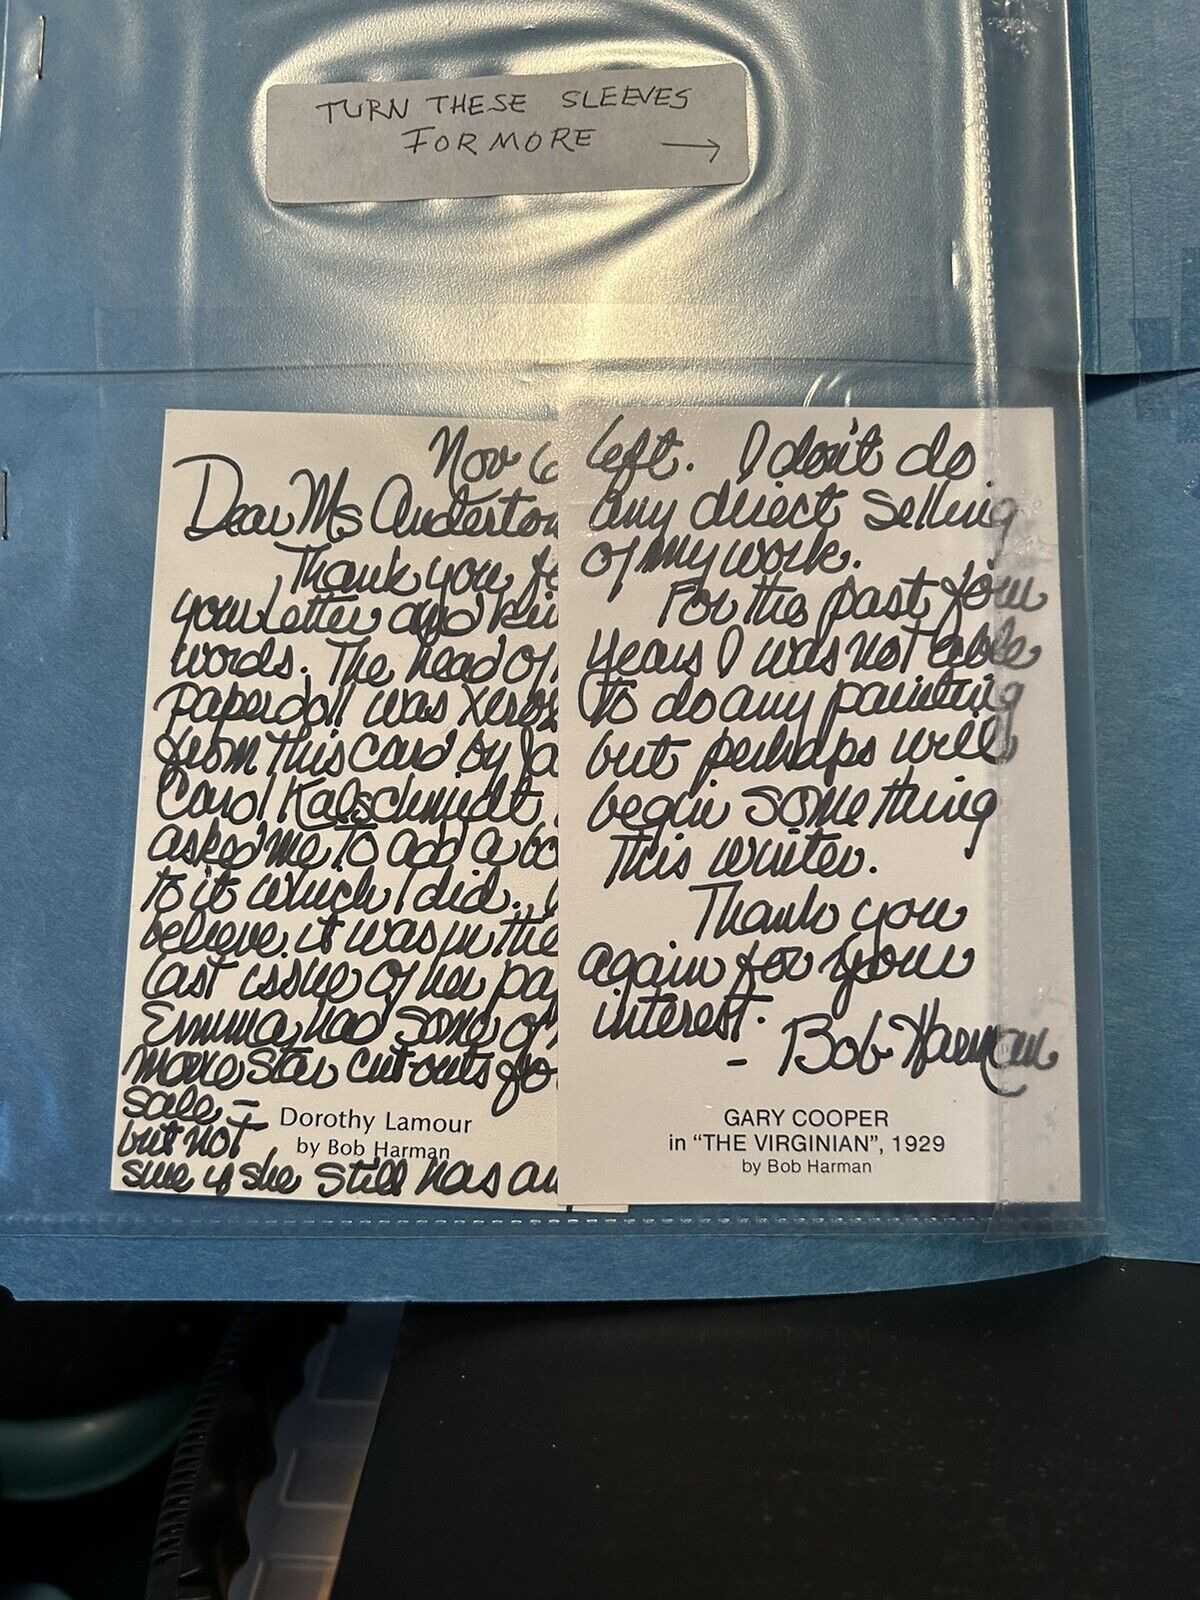 TURN THESE SLEEVES
FOR MORE →
Nov 6
Dear Ms Anderton
Thank you fo
your letter and kin
words. The head of
paperdoll was xerox
from this card by Ja
Carol Kalschmidt
asked me to add a bo
to it which I did.
believe it was in the
last issue of her pa
Emma had some of
movie star cut-outs fo
sale -
but not
sure if she still has an
Dorothy Lamour
by Bob Harman
left. I don't do
any direct selling
of my work.
For the past four
years I was not able
to do any painting
but perhaps will
begin something
this winter.
Thank you
again for your
interest.
- Bob Harman
GARY COOPER
in "THE VIRGINIAN", 1929
by Bob Harman